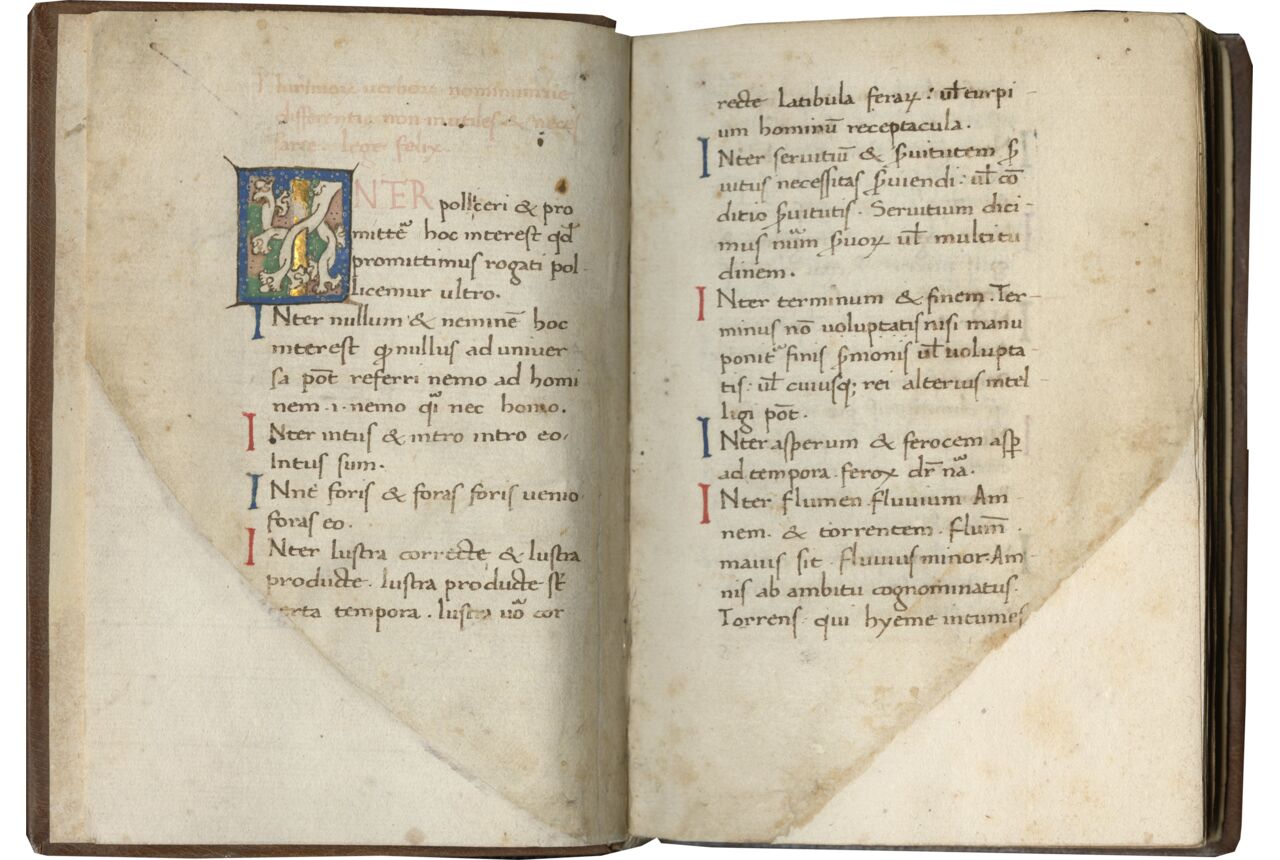 Plurimorum verborum nominumue
differentie non inutiles & neces
sarie. lege felix.
INTER polliceri & pro
mittē hoc interest qđ
promittimus rogati pol-
licemur ultro.
INter nullum & neminē hoc
interest ꝙ nullus ad uniuer
sa pōt referri nemo ad homi
nem .i. nemo qī nec homo.
INter intus & intro intro eo.
Intus sum.
INnē foris & foras foris uenio
foras eo.
INter lustra correcte & lustra
producte. lustra producte st̄
certa tempora. lustra uō cor
recte latibula feraꝝ: ul̄ turpi-
um hominū receptacula.
INter seruitiū & ꝕuitutem ꝕ
uitus necessitas ꝕuiendi: ul̄ cō
ditio ꝕuitutis. Seruitium dici-
mus nūm ꝕuoꝝ ul̄ multitu
dinem.
INter terminum & finem. Ter-
minus nō uoluptatis nisi manu
ponit᷑ finis ꝕmonis ul̄ uolupta-
tis: ul̄ cuiusqꝫ rei alterius intel-
ligi pōt.
INter asperum & ferocem asꝑ
ad tempora. ferox dr̄ nā.
INter flumen fluuium Am-
nem. & torrentem. flum̄
maius sit. fluuius minor. Am-
nis ab ambitu cognominatus.
Torrens qui hyeme intumes